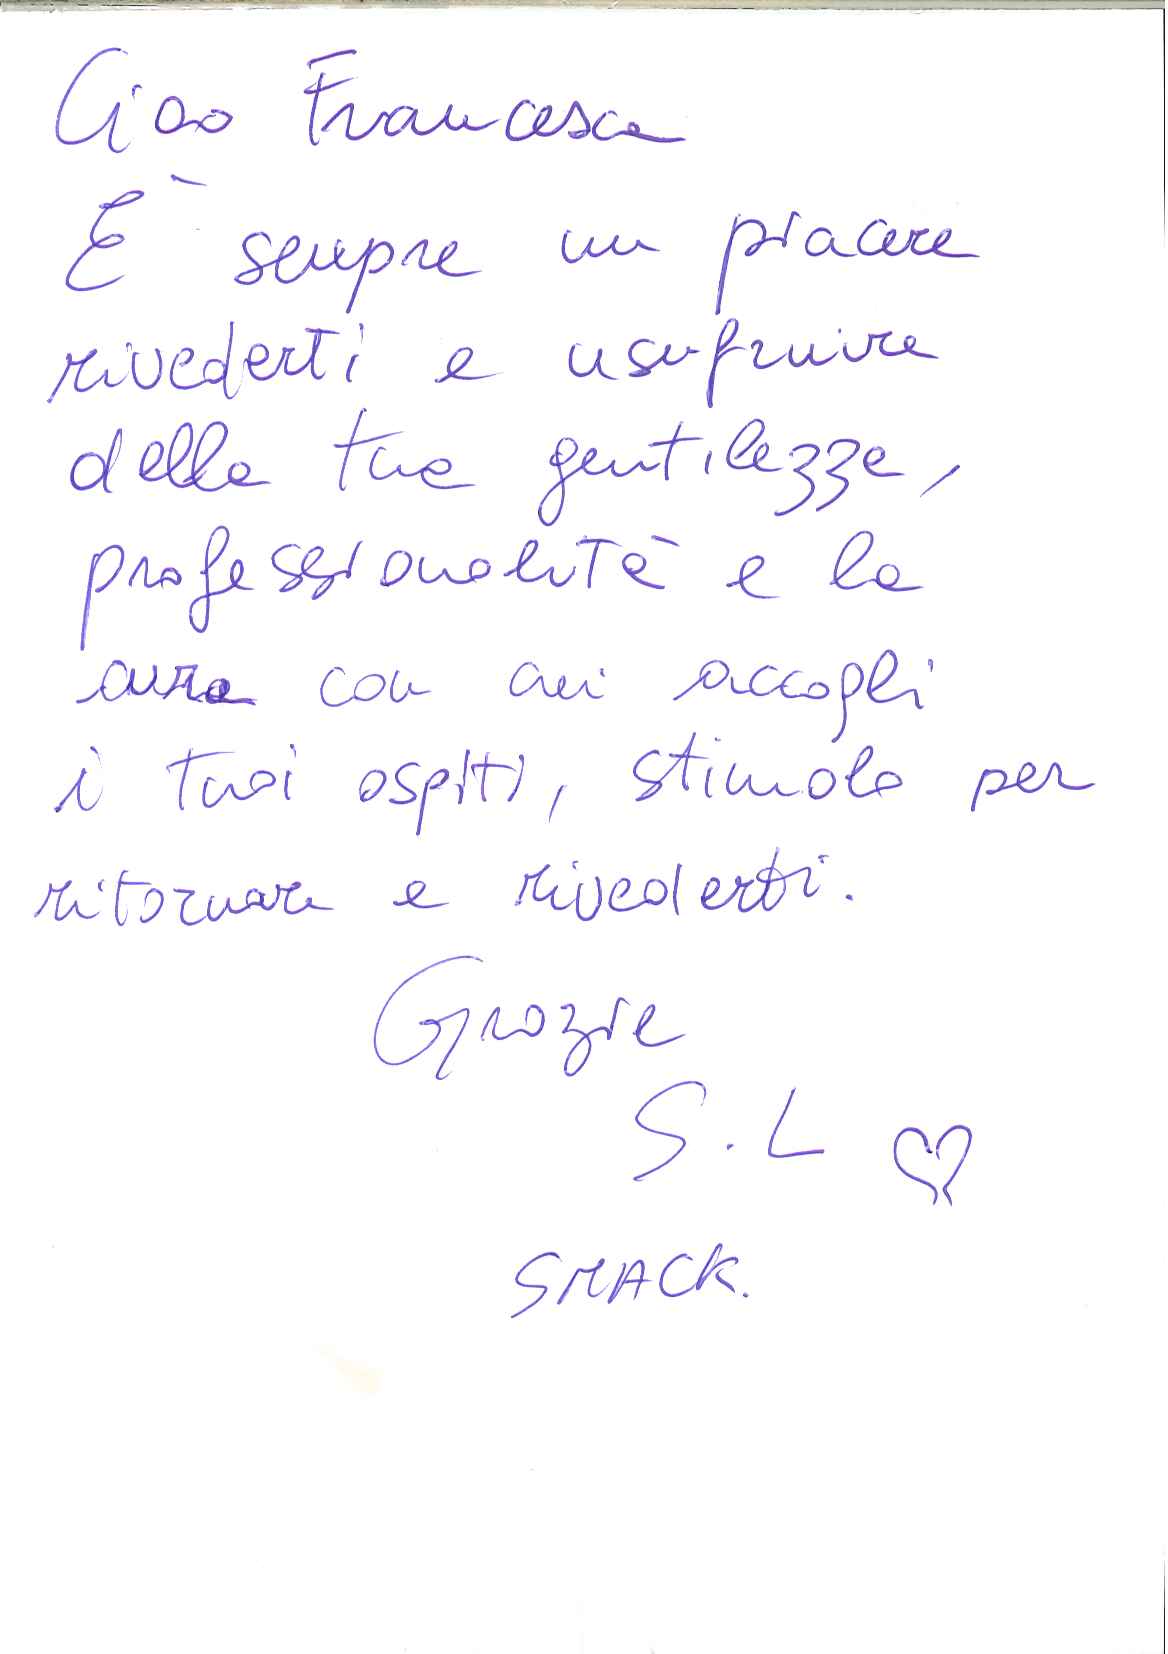 Ciao Francesca
È sempre un piacere
rivederti e usufruire
della tua gentilezza,
professionalità e la
cura con cui accogli
i tuoi ospiti, stimolo per
ritornare e rivederti.
Grazie
S.L
SMACK.